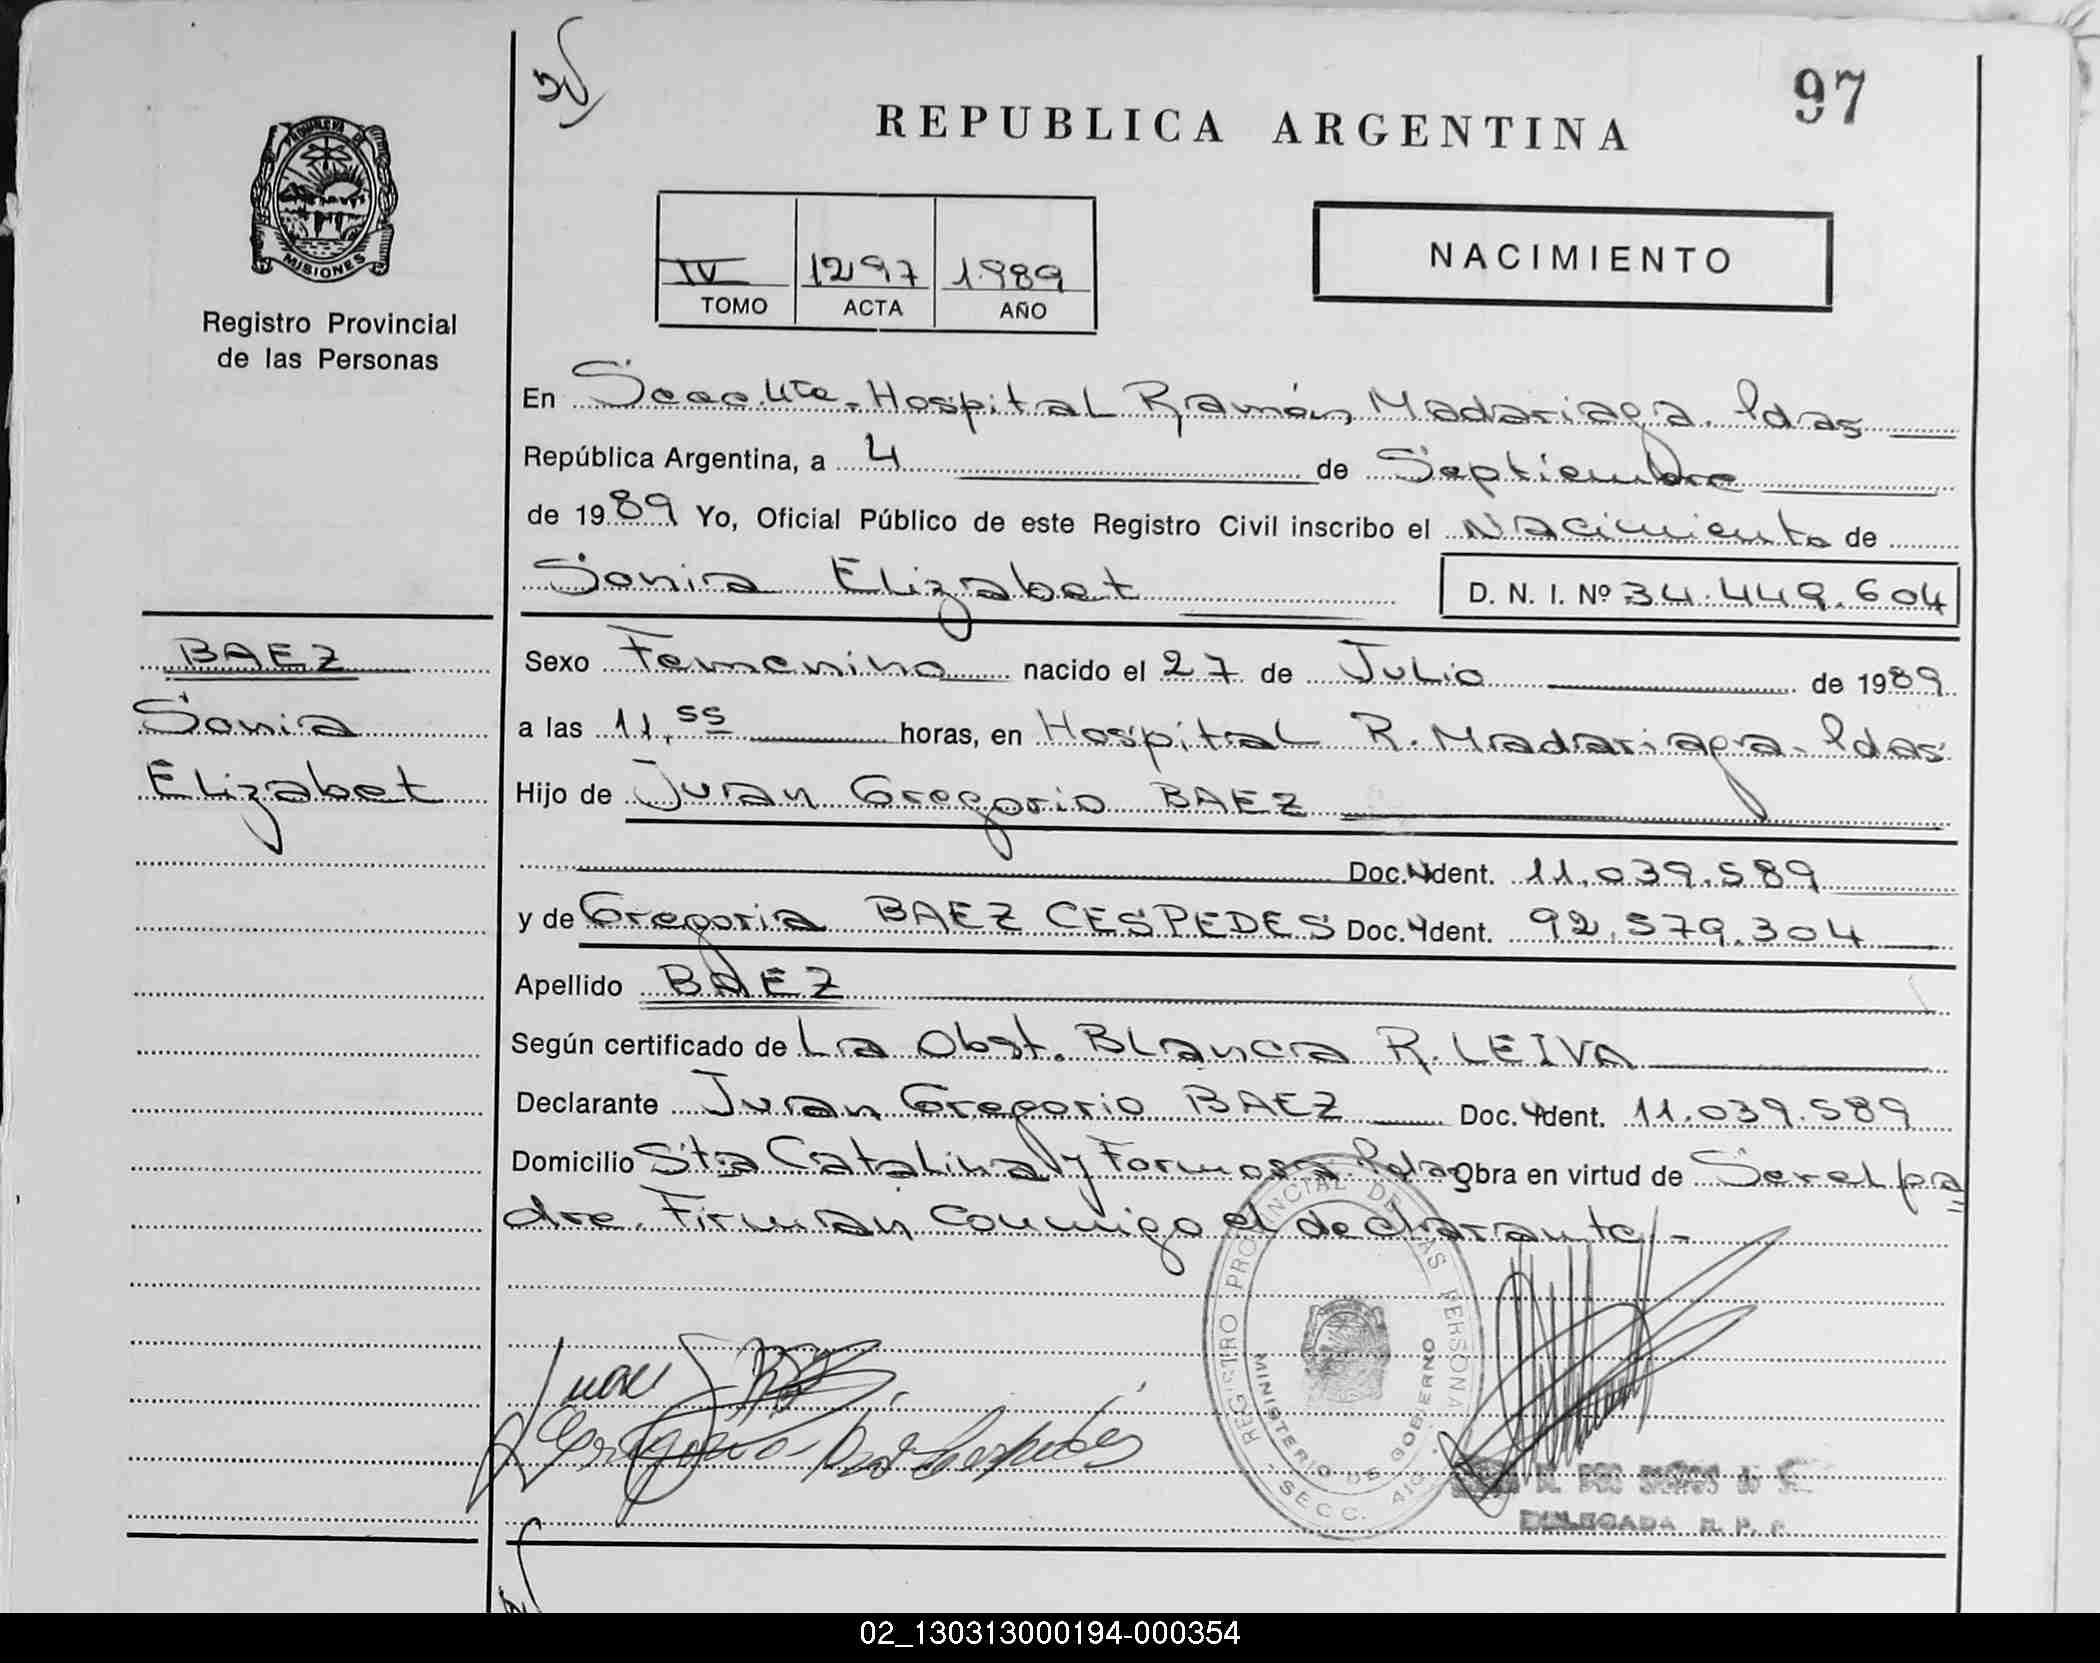 97
REPUBLICA ARGENTINA
PROVINCIA DE
MISIONES
Registro Provincial
de las Personas
IV 1297 1989
TOMO ACTA AÑO
NACIMIENTO
En Secc. Hospital Ramón Madariaga. Pdas
República Argentina, a 4 de Septiembre
de 1989 Yo, Oficial Público de este Registro Civil inscribo el Nacimiento de
Sonia Elizabet D. N. I. Nº 34.449.604
BAEZ
Sonia
Elizabet
Sexo Femenino nacido el 27 de Julio de 1989
a las 11,55 horas, en Hospital R. Madariaga. Pdas
Hijo de Juan Gregorio BAEZ
Doc. Ident. 11.039.589
y de Gregoria BAEZ CESPEDES Doc. Ident. 92.579.304
Apellido BAEZ
Según certificado de La Obst. Blanca R. LEIVA
Declarante Juan Gregorio BAEZ Doc. Ident. 11.039.589
Domicilio Sta Catalina y Formosa Pdas Obra en virtud de Ser el pa=
dre. Firman conmigo el declarante.-
REGISTRO PROVINCIAL DE LAS PERSONAS
MINISTERIO DE GOBIERNO
SECC. 410
Juan
Gregoria Baez Cespedes
DELEGADA R. P. P.
02_130313000194-000354